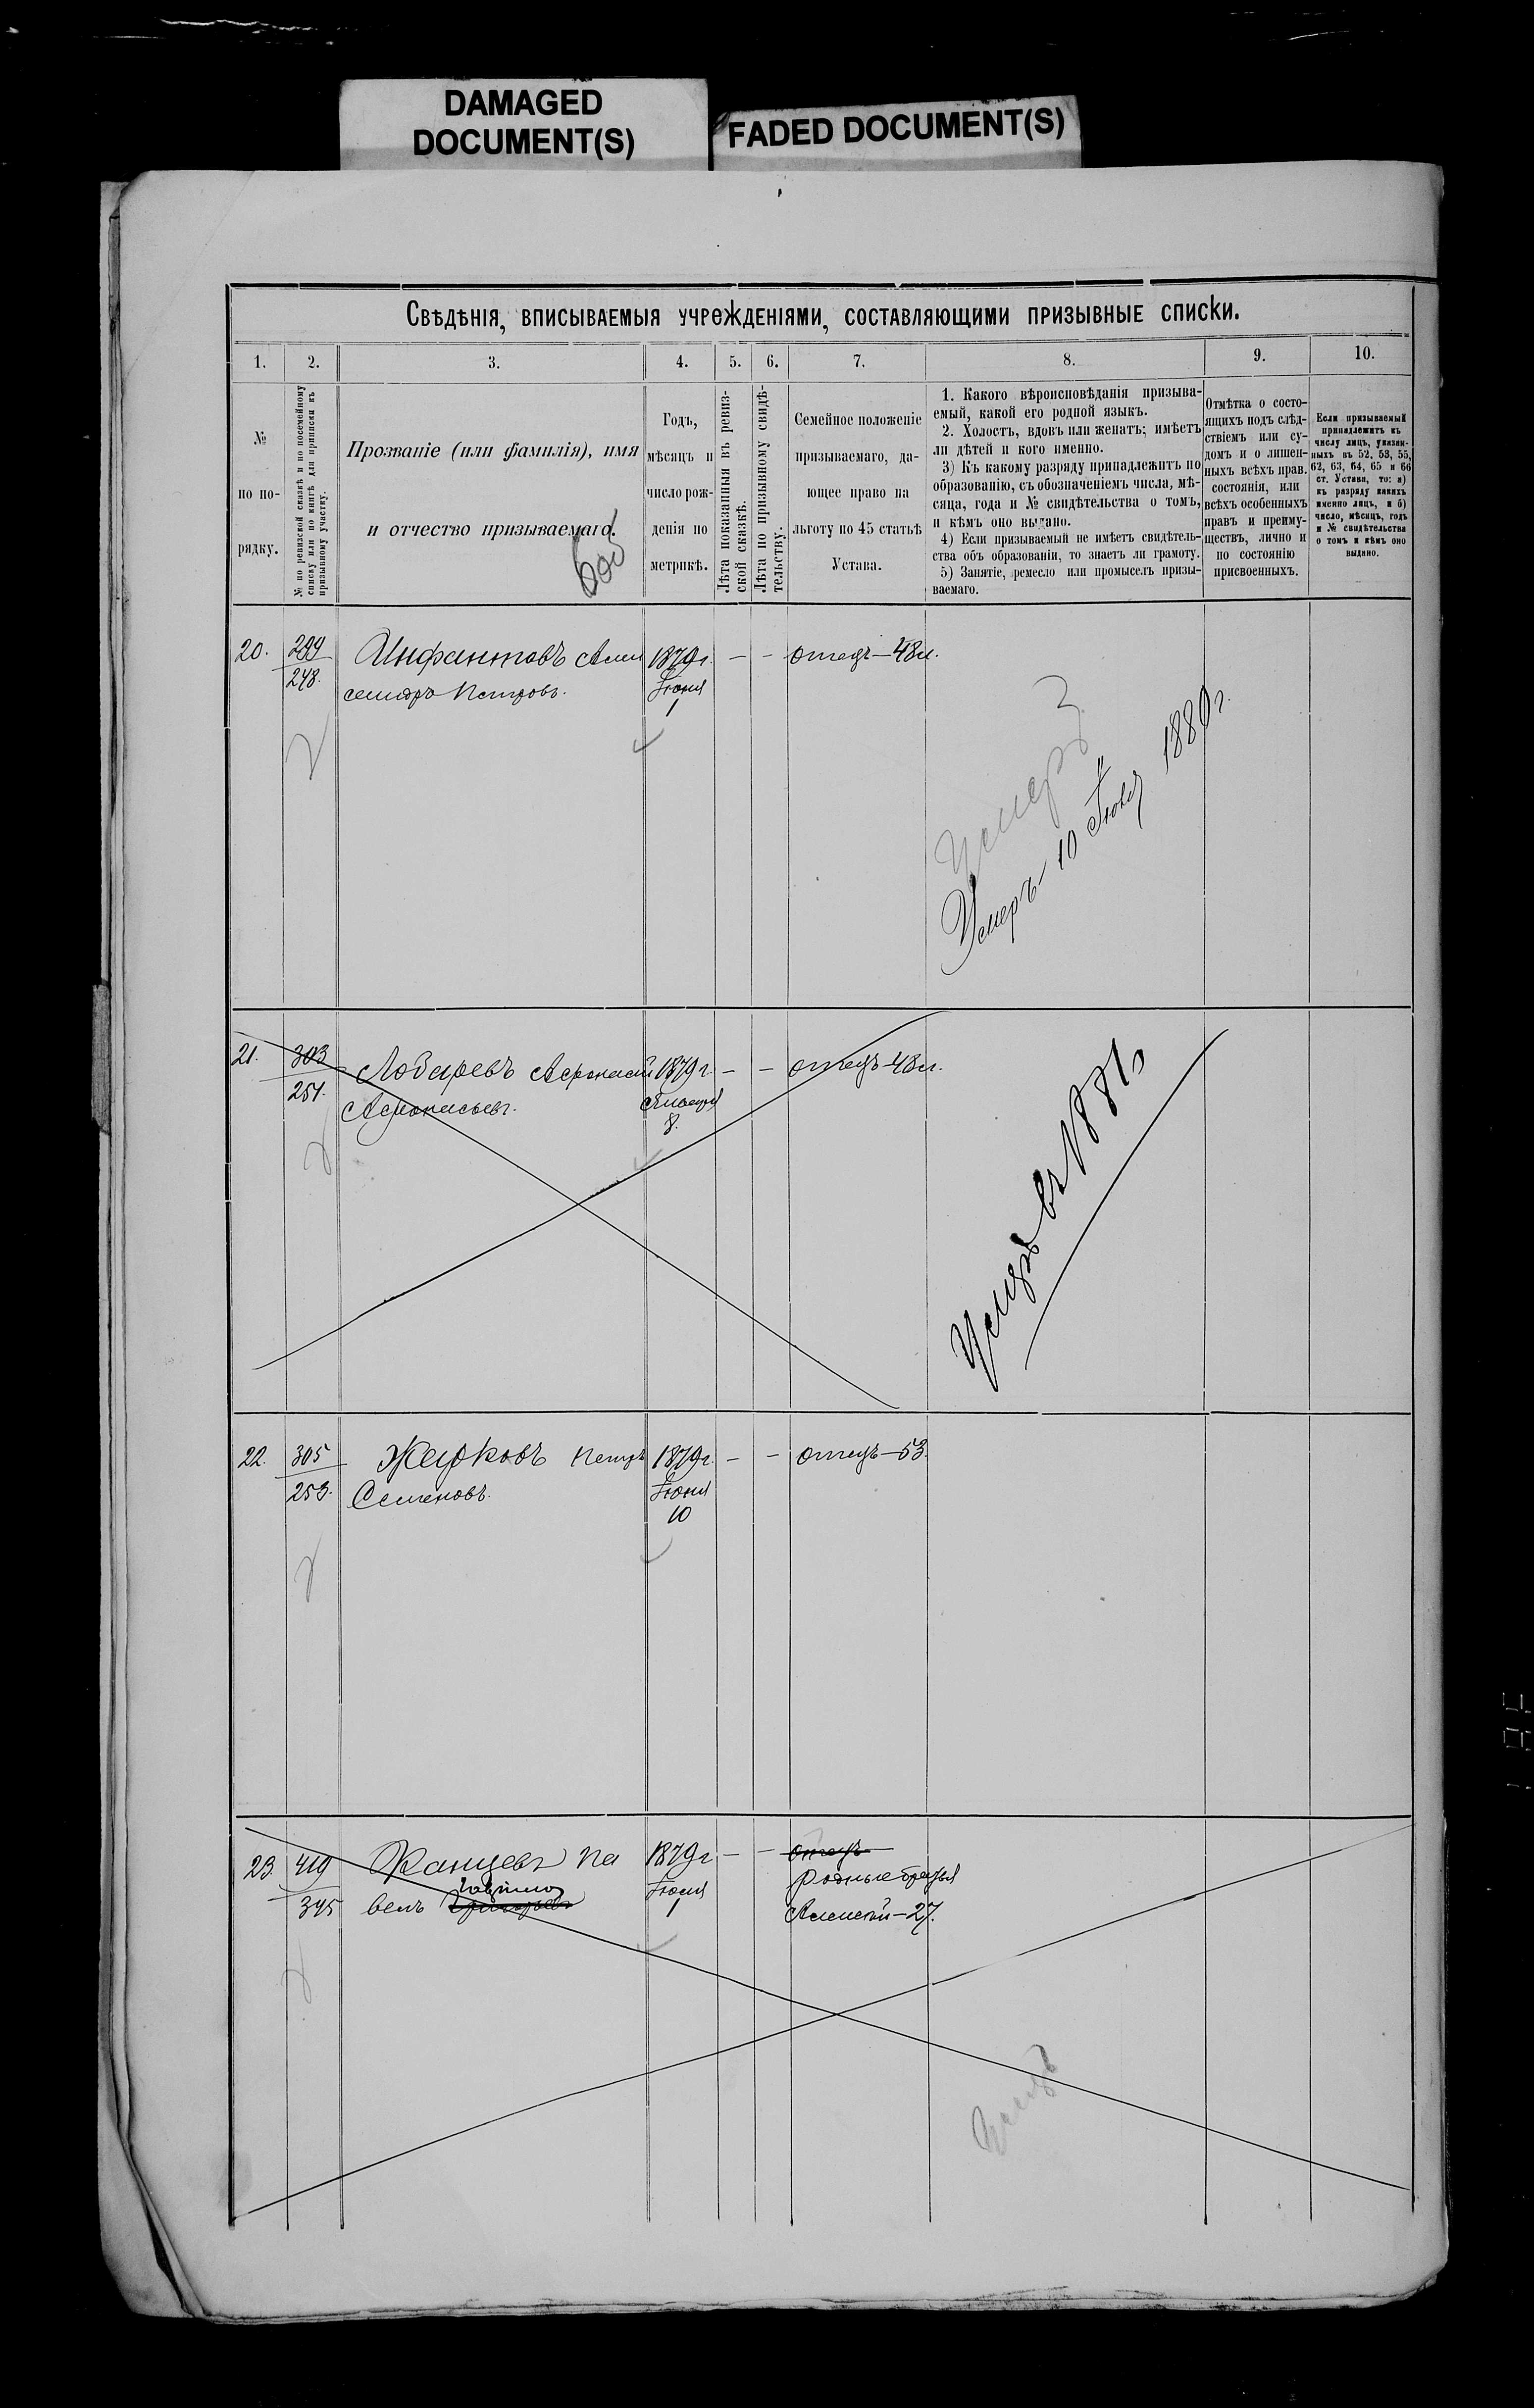 DAMAGED
DOCUMENT(S)
FADED DOCUMENT(S)
Свѣдѣнія, вписываемыя учрежденіями, составляющими призывные списки.
1. 2. 3. 4. 5. 6. 7. 8. 9. 10.
№
по по-
рядку.
№ по ревизской сказкѣ и по посемейному
списку или по книгѣ для приписки къ
призывному участку.
Прозваніе (или фамилія), имя
и отчество призываемаго.
Годъ,
мѣсяцъ и
число рож-
денія по
метрикѣ.
Лѣта показанныя въ ревиз-
ской сказкѣ.
Лѣта по призывному свидѣ-
тельству.
Семейное положеніе
призываемаго, да-
ющее право на
льготу по 45 статьѣ
Устава.
1. Какого вѣроисповѣданія призыва-
емый, какой его родной языкъ.
2. Холостъ, вдовъ или женатъ; имѣетъ
ли дѣтей и кого именно.
3) Къ какому разряду принадлежитъ по
образованію, съ обозначеніемъ числа, мѣ-
сяца, года и № свидѣтельства о томъ,
и кѣмъ оно выдано.
4) Если призываемый не имѣетъ свидѣтель-
ства объ образованіи, то знаетъ ли грамоту.
5) Занятіе, ремесло или промыселъ призы-
ваемаго.
Отмѣтка о состо-
ящихъ подъ слѣд-
ствіемъ или су-
домъ и о лишен-
ныхъ всѣхъ прав.
состоянія, или
всѣхъ особенныхъ
правъ и преиму-
ществъ, лично и
по состоянію
присвоенныхъ.
Если призываемый
принадлежитъ къ
числу лицъ, указан-
ныхъ въ 52, 53, 55,
62, 63, 64, 65 и 66
ст. Устава, то: а)
къ разряду какихъ
именно лицъ, и б)
число, мѣсяцъ, годъ
и № свидѣтельства
о томъ и кѣмъ оно
выдано.
20. 299 Инфантовъ Алек 1879г. — — отецъ—48л.
248. сандръ Петровъ. Іюня
1
Умеръ
Умеръ 10 Іюля 1880г.
21. 303 Лобаревъ Афонасій 1879г. — — отецъ 48л.
251. Афонасьевъ. Января
8.
Умеръ въ 1881
22. 305 Жарковъ Петръ 1879г. — — отецъ—53.
253. Семеновъ. Іюня
10
23. 419 Канцевъ Па 1879г — — отецъ
345 велъ Григорьевъ Іюня родные братья
1 Алексѣй—27.
Умеръ